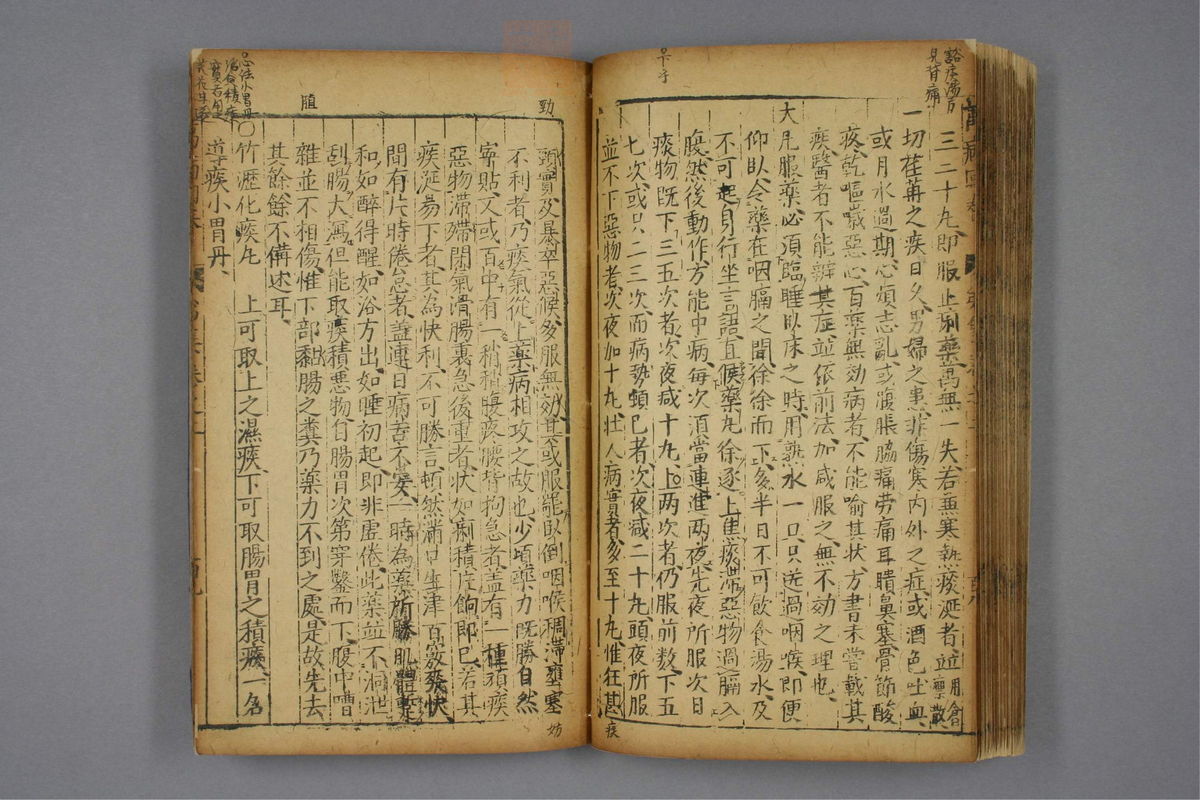 三二十丸即服止痢藥萬無一失若無寒熱痰涎者並用倉廩散
一切荏苒之疾日久男婦之患非傷寒內外之症或酒色吐血
或月水過期心煩志亂或腹脹脇痛労痛耳聵鼻塞骨節酸
疼乾嘔噦惡心百藥無効病者不能喻其狀方書未嘗載其
疾醫者不能辨其症並依前法加减服之無不効之理也
大凡服藥必須臨睡臥床之時用熟水一口只送過咽喉即便
仰臥令藥在咽膈之間徐徐而下多半日不可飲食湯水及
不可起身行坐言語直候藥丸徐逐上焦痰滯惡物過膈入
腹然後動作方能中病每次須當連進兩夜先夜所服次日
痰物既下三五次者次夜减十丸上兩次者仍服前数下五
七次或只二三次而病勢頓已者次夜减二十丸頭夜所服
並不下惡物者次夜加十丸壮人病實者多至百丸惟狂甚
勁
頸實及暴卒惡候多服無効其或服罷臥倒咽喉稠滯壅塞
不利者乃痰氣從上藥病相攻之故也少頃藥力既勝自然
寧貼又或百中有一稍稍腹疼腰背拘急者盖有一種頑痰
惡物滯殢閉氣滑腸裏急後重者狀如痢積片餉即已若其
痰涎昜下者其為快利不可勝言頓然滿口生津百竅爽快
間有片時倦怠者盖連日病苦不安一時為藥所勝肌體暫
和如醉得醒如浴方出如睡初起即非虛倦此藥並不洞泄
刮腸大瀉但能取痰積惡物自腸胃次第穿鑿而下腹中嘈
雜並不相傷惟下部黏腸之糞乃藥力不到之處是故先去
其餘餘不備述耳
竹瀝化痰丸 上可取上之濕痰下可取腸胃之積痰一名
導痰小胃丹